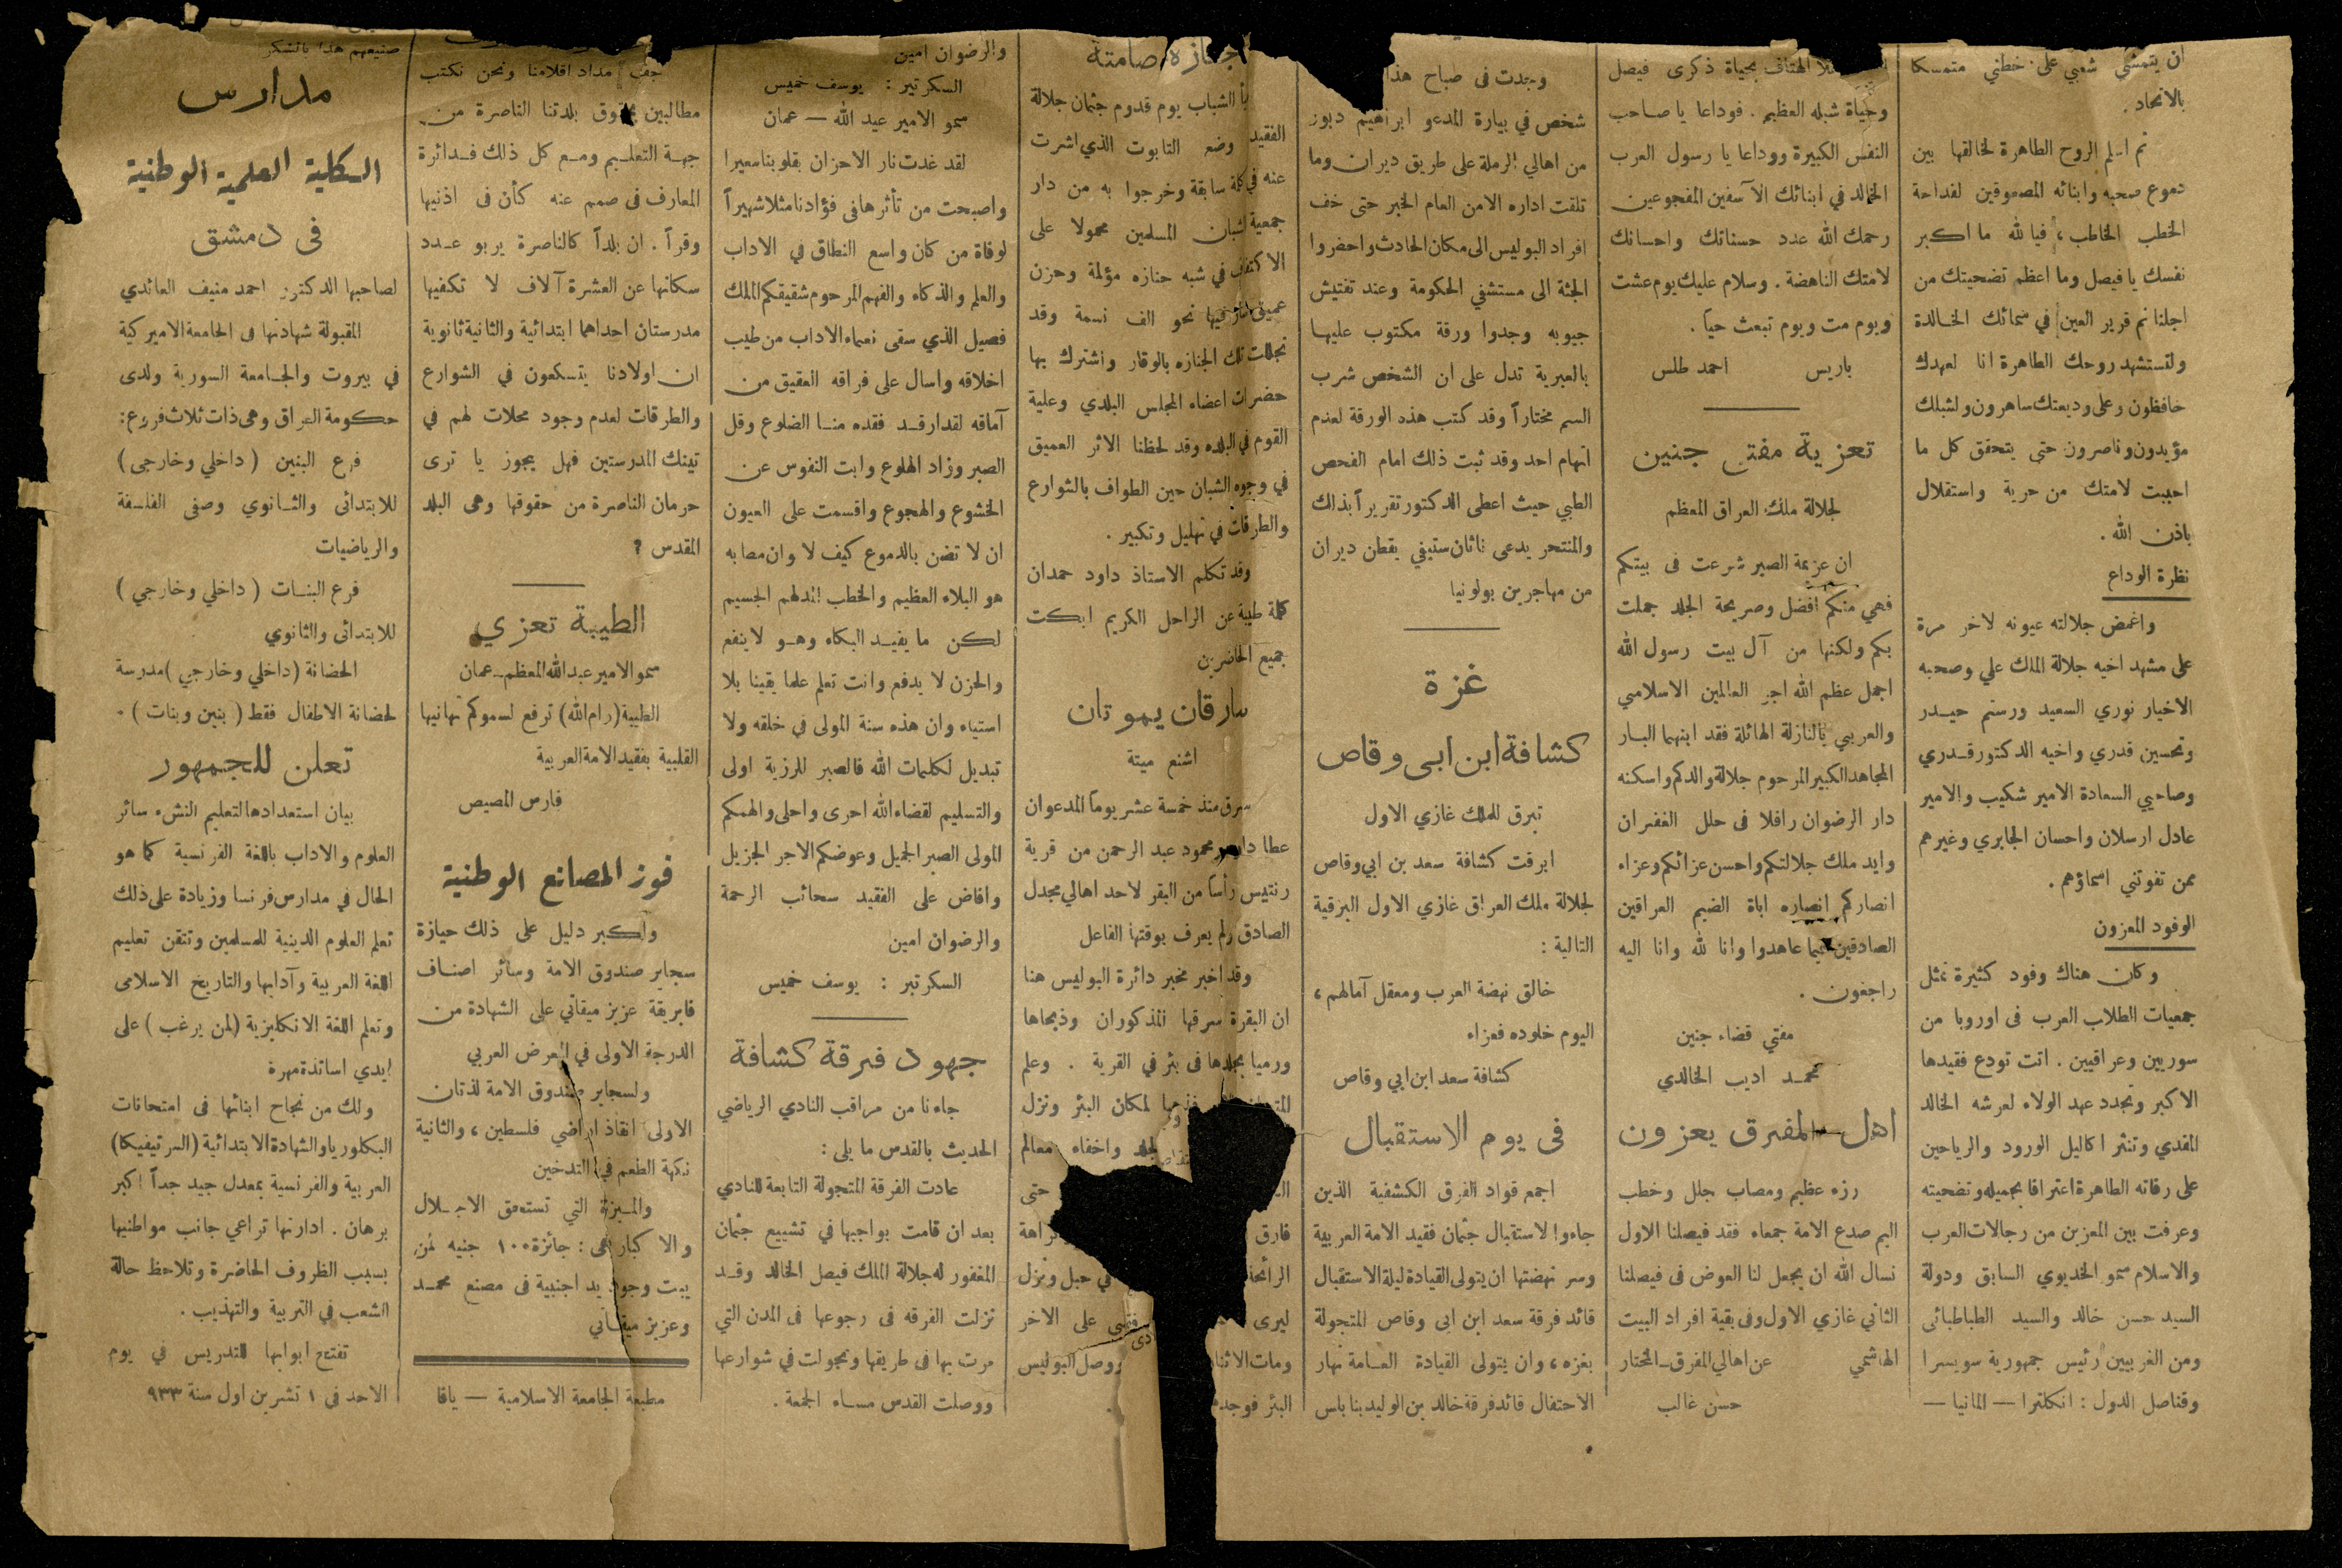 ان يتمشى شعبي على خطتي متمسكا
بالاتحاد .
ثم اسلم الروح الطاهرة لخالقها بين
دموع صحبه وابنائه المصعوقين لفداحة
الخطب الخاطب ، فيا لله ما اكبر
نفسك يا فيصل وما اعظم تضحيتك من
اجلنا نم قرير العين في سمائك الخالدة
ولتستشهد روحك الطاهرة انا لعهدك
حافظون وعلى وديعتك ساهرون ولشبلك
مؤيدون وناصرون حتى يتحقق كل ما
احببت لامتك من حرية واستقلال
باذن الله .
نظرة الوداع
واغمض جلالته عيونه لاخر مرة
على مشهد اخيه جلالة الملك علي وصحبه
الاخيار نوري السعيد ورستم حيدر
وتحسين قدري واخيه الدكتور قدري
وصاحبي السعادة الامير شكيب والامير
عادل ارسلان واحسان الجابري وغيرهم
ممن تفوتني اسماؤهم .
الوفود المعزون
وكان هناك وفود كثيرة تمثل
جمعيات الطلاب العرب فى اوروبا من
سوريين وعراقيين . اتت تودع فقيدها
الاكبر وتجدد عهد الولاء لعرشه الخالد
المفدي وتنثر اكاليل الورود والرياحين
على رفاته الطاهرة اعترافا بجميله وتضحيته
وعرفت بين المعزين من رجالات العرب
والاسلام سمو الخديوي السابق ودولة
السيد حسن خالد والسيد الطباطبائى
ومن الغربيين رئيس جمهورية سويسرا
وقناصل الدول : انكلترا — المانيا —
الهتاف بحياة ذكرى فيصل
وحياة شبله العظيم . فوداعا يا صاحب
النفس الكبيرة ووداعا يا رسول العرب
الخالد في ابنائك الآسفين المفجوعين
رحمك الله عدد حسناتك واحسانك
لامتك الناهضة . وسلام عليك يوم عشت
ويوم مت ويوم تبعث حياً .
باريس احمد طلس
تعزية مفتى جنين
لجلالة ملك العراق المعظم
ان عزيمة الصبر شرعت فى بيتكم
فهي منكم افضل وصريحة الجلد جملت
بكم ولكنها من آل بيت رسول الله
اجمل عظم الله اجر العالمين الاسلامي
والعربي بالنازلة الهائلة فقد ابنهما البار
المجاهد الكبير المرحوم جلالة والدكم واسكنه
دار الرضوان رافلا فى حلل الغفران
وايد ملك جلالتكم واحسن عزائكم وعزاء
انصاركم انصاره اباة الضيم العراقين
الصادقين فيما عاهدوا وانا لله وانا اليه
راجعون .
مفتي قضاء جنين
محمد اديب الخالدي
اهل المفرق يعزون
رزء عظيم ومصاب جلل وخطب
اليم صدع الامة جمعاء فقد فيصلنا الاول
نسال الله ان يجعل لنا العوض فى فيصلنا
الثاني غازي الاول وفى بقية افراد البيت
الهاشمي عن اهالي المفرق ـ المختار
حسن غالب
وجدت فى صباح هذا
شخص في بيارة المدعو ابراهيم دبوز
من اهالي الرملة على طريق ديران وما
تلقت اداره الامن العام الخبر حتى خف
افراد البوليس الى مكان الحادث واحضروا
الجثة الى مستشفي الحكومة وعند تفتيش
جيوبه وجدوا ورقة مكتوب عليها
بالعبرية تدل على ان الشخص شرب
السم مختاراً وقد كتب هذه الورقة لعدم
اتهام احد وقد ثبت ذلك امام الفحص
الطبي حيث اعطى الدكتور تقريراً بذلك
والمنتحر يدعى ناثان ستيفي يقطن ديران
من مهاجرين بولونيا
غزة
كشافة ابن ابى وقاص
تبرق للملك غازي الاول
ابرقت كشافة سعد بن ابي وقاص
لجلالة ملك العراق غازي الاول البرقية
التالية :
خالق نهضة العرب ومعقل آمالهم ،
اليوم خلوده فعزاء
كشافة سعد ابن ابي وقاص
فى يوم الاستقبال
اجمع قواد الفرق الكشفية الذين
جاءوا لاستقبال جثمان فقيد الامة العربية
وسر نهضتها ان يتولى القيادة ليلة الاستقبال
قائد فرقة سعد ابن ابى وقاص المتجولة
بغزه ، وان يتولى القيادة العامة نهار
الاحتفال قائد فرقة خالد بن الوليد بنابلس
جنازه صامتة
الشباب يوم قدوم جثمان جلالة
الفقيد وضع التابوت الذي اشرت
عنه في كلمة سابقة وخرجوا به من دار
جمعية الشبان المسلمين محمولا على
الاكتاف في شبه جنازه مؤلمة وحزن
عميق سار فيها نحو الف نسمة وقد
تجللت تلك الجنازه بالوقار واشترك بها
حضرات اعضاء المجلس البلدي وعلية
القوم في البلده وقد لحظنا الاثر العميق
في وجوه الشبان حين الطواف بالشوارع
والطرقات في تهليل وتكبير .
وقد تكلم الاستاذ داود حمدان
كلمة طيبة عن الراحل الكريم ابكت
جميع الحاضرين
سارقان يموتان
اشنع ميتة
سرق منذ خمسة عشر يوماً المدعوان
عطا محمود عبد الرحمن من قرية
رنتيس رأساً من البقر لاحد اهالي مجدل
الصادق ولم يعرف بوقتها الفاعل
وقد اخبر مخبر دائرة البوليس هنا
ان البقرة سرقها المذكوران وذبحاها
ورميا بجلدها فى بئر في القرية . وعلم
لمكان البئر ونزل
الجلد واخفاء معالم
حتى
فارق
الرائحة في حبل ونزل
ليرى على الاخر
ومات الاثنان ووصل البوليس
البئر فوجد
والرضوان امين
السكرتير : يوسف خميس
سمو الامير عبد الله — عمان
لقد غدت نار الاحزان بقلوبنا سعيرا
واصبحت من تأثرها فى فؤادنا مثلا شهيراً
لوفاة من كان واسع النطاق في الاداب
والعلم والذكاء والفهم المرحوم شقيقكم الملك
فصيل الذي سقى نعماء الاداب من طيب
اخلاقه واسال على فراقه العقيق من
آماقه لقد ارقد فقده منا الضلوع وقل
الصبر وزاد الهلوع وابت النفوس عن
الخشوع والهجوع واقسمت على العيون
ان لا تضن بالدموع كيف لا وان مصابه
هو البلاء العظيم والخطب المدلهم الجسيم
لكن ما يفيد البكاء وهو لا ينفع
والحزن لا يدفع وانت تعلم علما يقينا بلا
استياء وان هذه سنة المولى في خلقه ولا
تبديل لكلمات الله فالصبر للمرزية اولى
والتسليم لقضاء الله احرى واحلى والهمكم
المولى الصبر الجميل وعوضكم الاجر الجزيل
وافاض على الفقيد سحائب الرحمة
والرضوان امين
السكرتير : يوسف خميس
جهود فرقة كشافة
جاءنا من مراقب النادي الرياضي
الحديث بالقدس ما يلى :
عادت الفرقة المتجولة التابعة للنادي
بعد ان قامت بواجبها في تشييع جثمان
المغفور له جلالة الملك فيصل الخالد وقد
نزلت الفرقه فى رجوعها فى المدن التي
مرت بها فى طريقها وتجولت في شوارعها
ووصلت القدس مساء الجمعة .
جف مداد اقلامنا ونحن نكتب
مطالبين بحقوق بلدتنا الناصرة من
جهة التعليم ومع كل ذلك فدائرة
المعارف فى صمم عنه كأن فى اذنيها
وقراً . ان بلداً كالناصرة يربو عدد
سكانها عن العشرة آلاف لا تكفيها
مدرستان احداهما ابتدائية والثانية ثانوية
ان اولادنا يتسكعون في الشوارع
والطرقات لعدم وجود محلات لهم في
تينك المدرستين فهل يجوز يا ترى
حرمان الناصرة من حقوقها وهى البلد
المقدس ؟
الطيبة تعزي
سمو الامير عبد الله المعظم ـ عمان
الطيبة (رام الله) ترفع لسموكم تهانيها
القلبية بفقيد الامة العربية
فارس المصيص
فوز المصانع الوطنية
واكبر دليل على ذلك حيازة
سجاير صندوق الامة وسائر اصناف
فابريقة عزيز ميقاتي على الشهادة من
الدرجة الاولى في المعرض العربي
ولسجاير صندوق الامة لذتان
الاولى انقاذ اراضي فلسطين ، والثانية
نكهة الطعم في التدخين
والميزة التي تستحق الاجلال
والاكبار هى : جائزة ١٠٠ جنيه لمن
يبت وجود يد اجنبية فى مصنع محمد
وعزيز ميقاتي
مطبعة الجامعة الاسلامية — يافا
صنيعهم هذا بالشكر
مدارس
الكلية العلمية الوطنية
فى دمشق
لصاحبها الدكتور احمد منيف العائدي
المقبولة شهادتها فى الجامعة الاميركية
في بيروت والجامعة السورية ولدى
حكومة العراق وهى ذات ثلاث فروع :
فرع البنين ( داخلي وخارجى )
للابتدائى والثانوي وصفى الفلسفة
والرياضيات
فرع البنات ( داخلي وخارجي )
للابتدائى والثانوي
الحضانة ( داخلي وخارجي ) مدرسة
لحضانة الاطفال فقط ( بنين وبنات ) .
تعلن للجمهور
بيان استعدادها لتعليم النشء سائر
العلوم والاداب باللغة الفرنسية كما هو
الحال في مدارس فرنسا وزيادة على ذلك
تعلم العلوم الدينية للمسلمين وتتقن تعليم
اللغة العربية وآدابها والتاريخ الاسلامى
وتعلم اللغة الانكليزية ( لمن يرغب ) على
ايدي اساتذة مهرة
ولك من نجاح ابنائها فى امتحانات
البكلوريا والشهادة الابتدائية (السرتيفيكا)
العربية والفرنسية بمعدل جيد جداً اكبر
برهان . ادارتها تراعي جانب مواطنيها
بسبب الظروف الحاضرة وتلاحظ حالة
الشعب في التربية والتهذيب .
تفتح ابوابها للتدريس في يوم
الاحد فى ١ تشرين اول سنة ٩٣٣